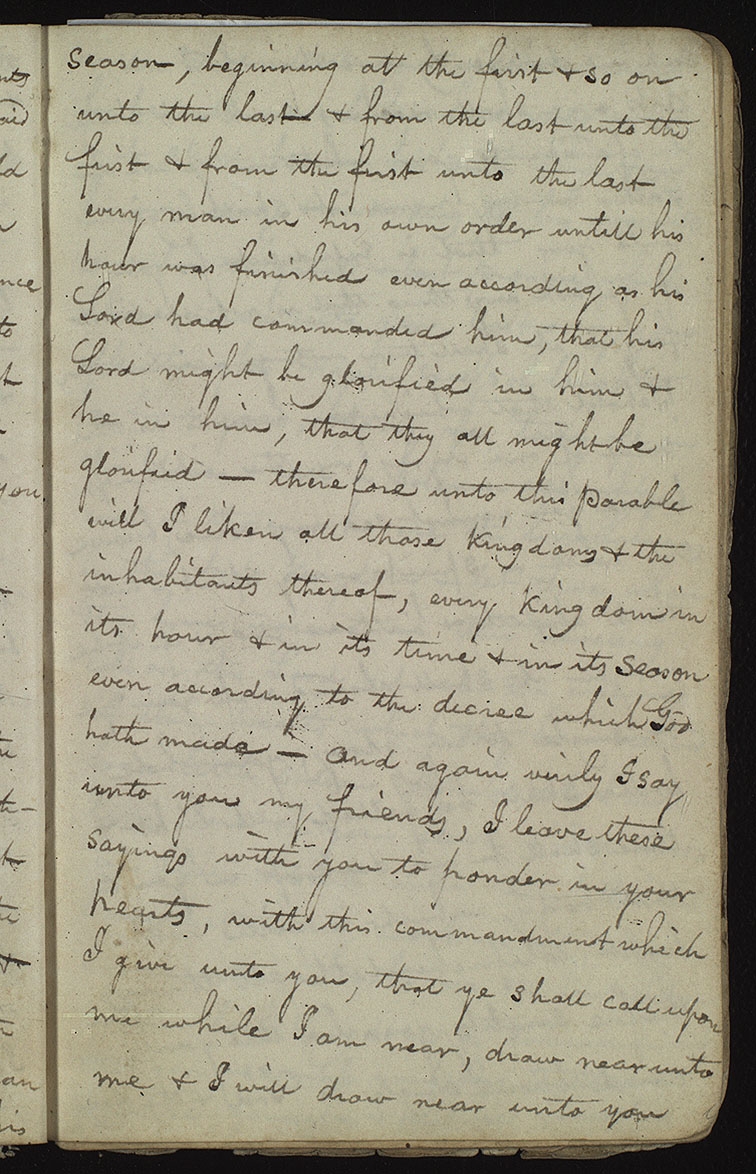 season, beginning at the first & so on
unto the last & from the last unto the
first & from the first unto the last
every man in his own order untill his
hour was finished even according as his
Lord had commanded him, that his
Lord might be glorifiéd in him &
he in him, that they all might be
glorifaid — therefore unto this parable
will I liken all those kingdoms & the
inhabitants thereof, every kingdom in
its hour & in its time & in its season
even according to the decree which God
hath made — And again verily I say
unto you my friends, I leave these
sayings with you to ponder in your
hearts, with this commandment which
I give unto you, that ye shall call upon
me while I am near, draw near unto
me & I will draw near unto you